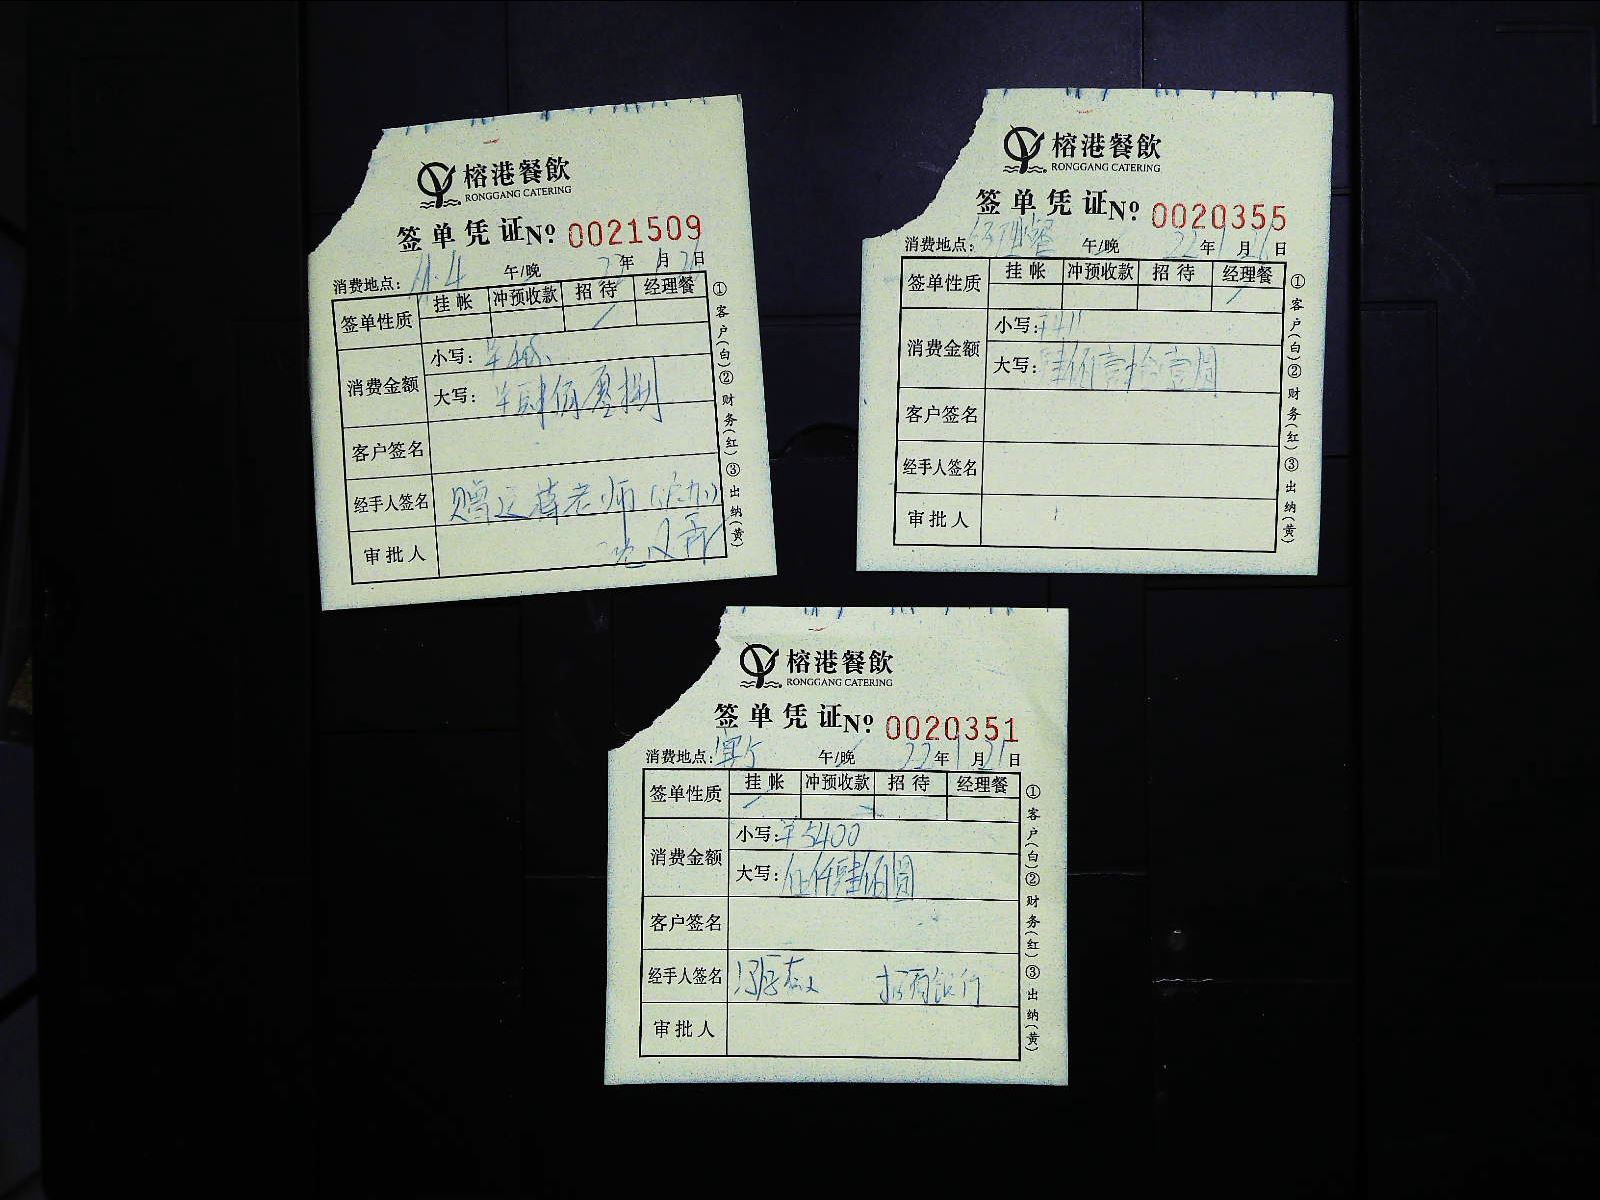 榕港餐飲
RONGGANG CATERING
签单凭证№ 0021509
消费地点: 午/晚 22年1月21日
签单性质 挂帐 冲预收款 招待 经理餐
消费金额 小写:
大写: 肆佰零捌
客户签名
经手人签名 赠送 老师
审批人
①客户(白)②财务(红)③出纳(黄)
榕港餐飲
RONGGANG CATERING
签单凭证№ 0020355
消费地点: 经理餐 午/晚 22年1月21日
签单性质 挂帐 冲预收款 招待 经理餐
消费金额 小写: ¥411
大写: 肆佰壹拾壹圆
客户签名
经手人签名
审批人
①客户(白)②财务(红)③出纳(黄)
榕港餐飲
RONGGANG CATERING
签单凭证№ 0020351
消费地点: 午/晚 22年1月21日
签单性质 挂帐 冲预收款 招待 经理餐
消费金额 小写: ¥5400
大写: 伍仟肆佰圆
客户签名
经手人签名 招商银行
审批人
①客户(白)②财务(红)③出纳(黄)